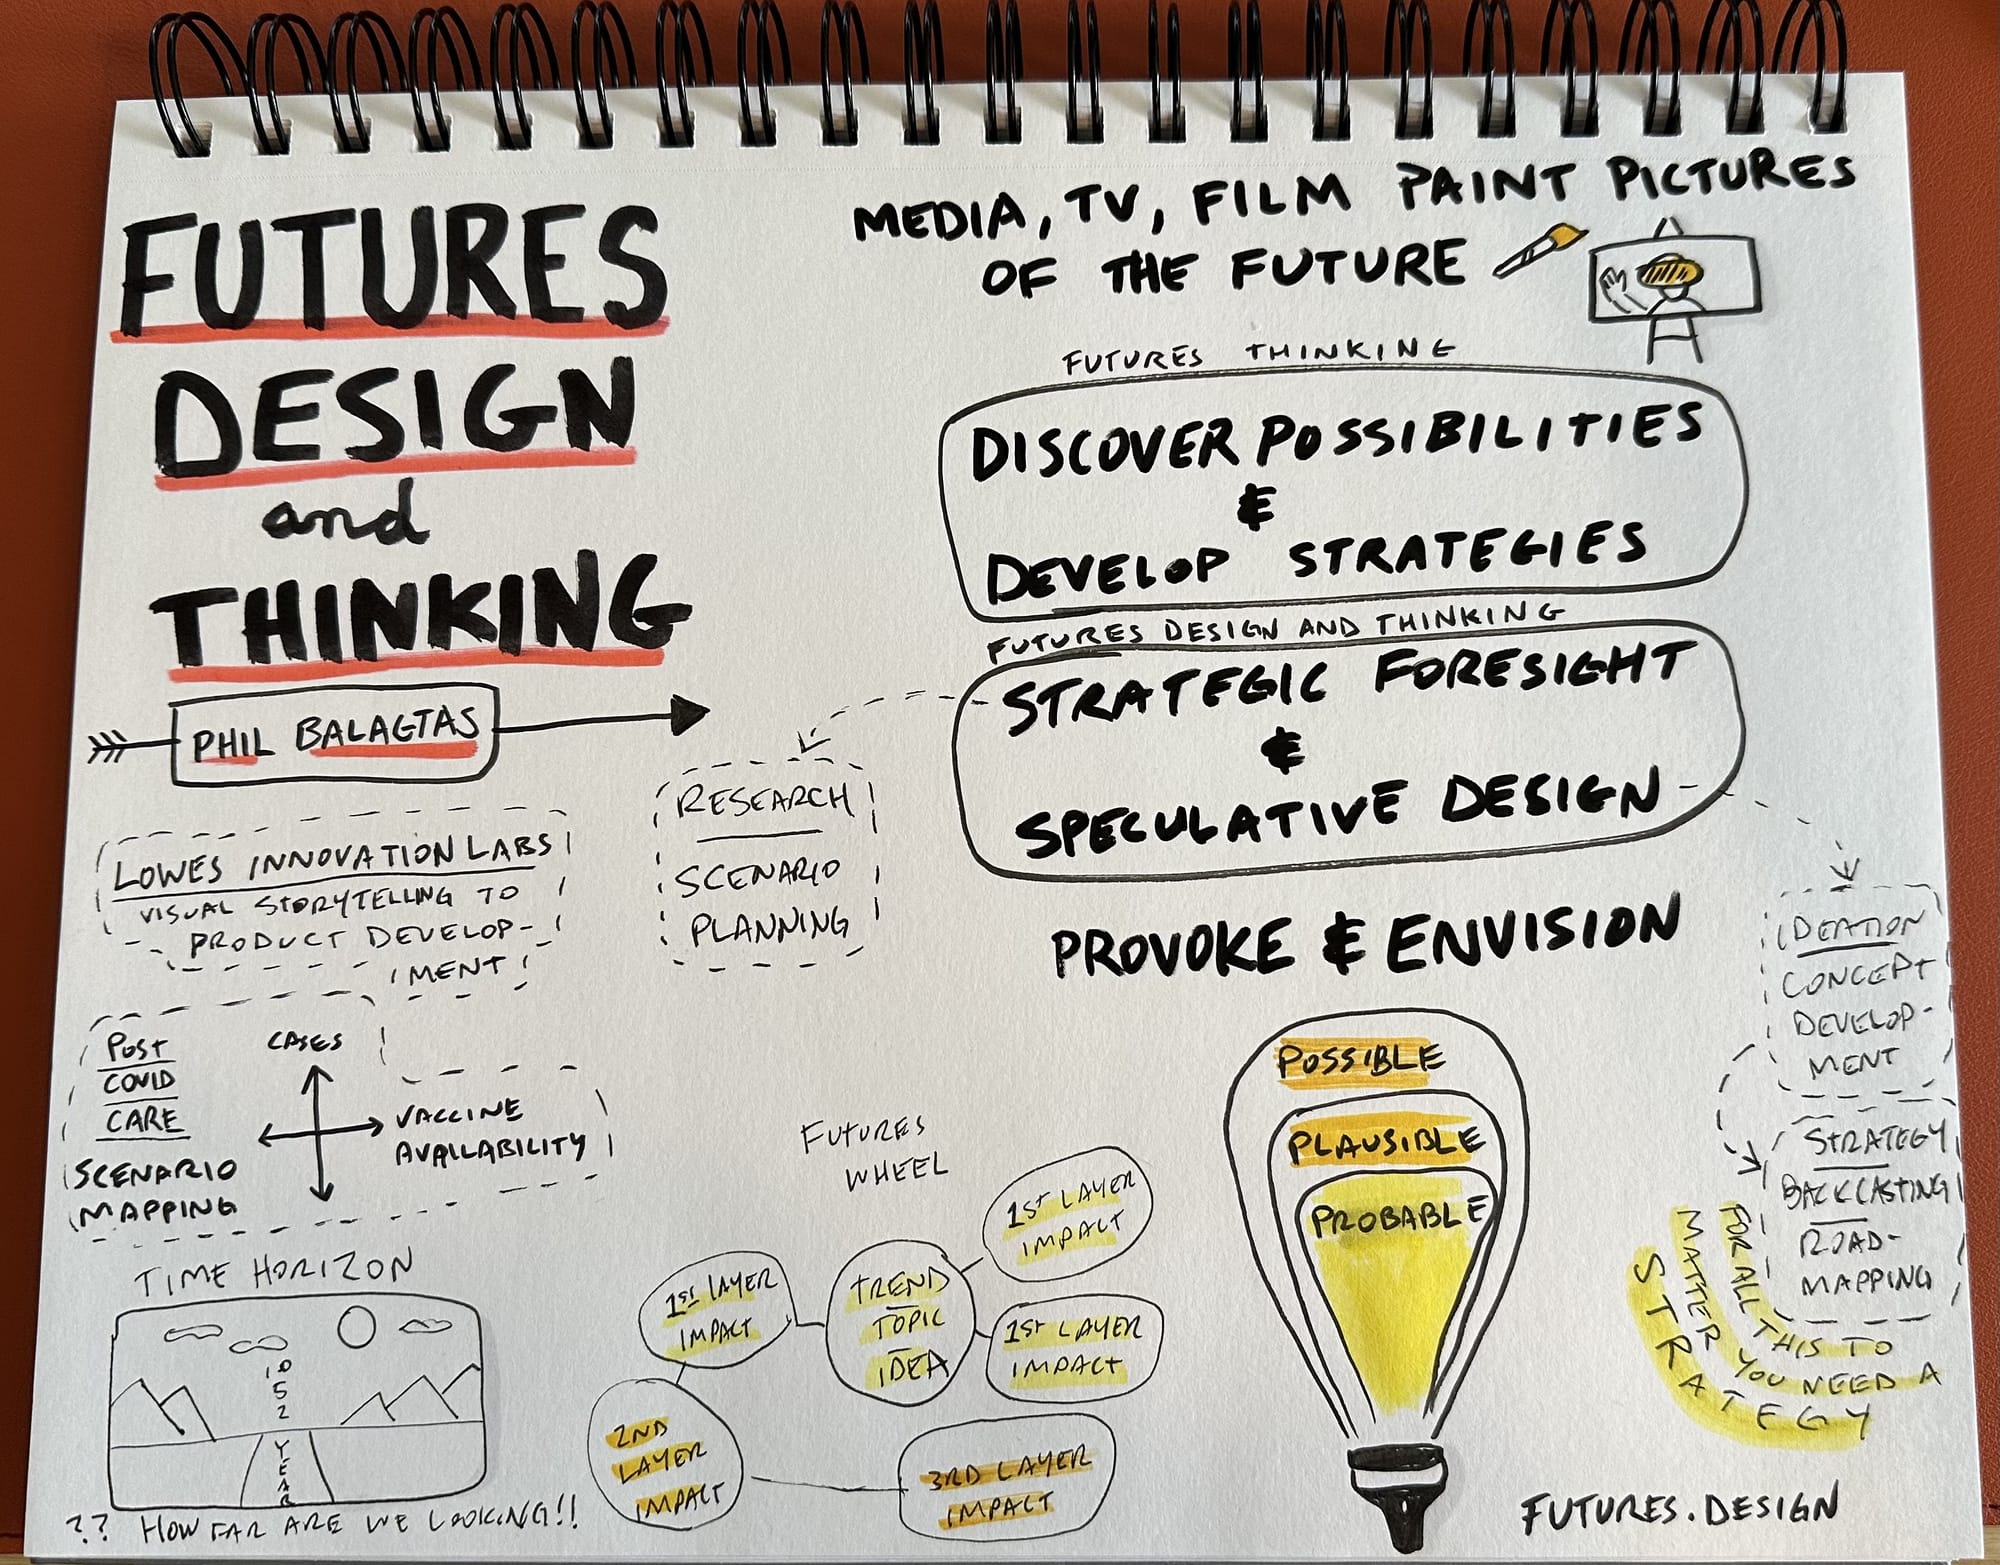 FUTURES
DESIGN
and
THINKING
PHIL BALAGTAS
LOWES INNOVATION LABS
VISUAL STORYTELLING TO
PRODUCT DEVELOP-
MENT
POST
COVID
CARE
SCENARIO
MAPPING
CASES
VACCINE
AVAILABILITY
TIME HORIZON
10
5
2
YEAR
?? HOW FAR ARE WE LOOKING!!
MEDIA, TV, FILM PAINT PICTURES
OF THE FUTURE
FUTURES THINKING
DISCOVER POSSIBILITIES
&
DEVELOP STRATEGIES
FUTURES DESIGN AND THINKING
STRATEGIC FORESIGHT
&
SPECULATIVE DESIGN
RESEARCH
SCENARIO
PLANNING
PROVOKE & ENVISION
IDEATION
CONCEPT
DEVELOP-
MENT
STRATEGY
BACKCASTING
ROAD-
MAPPING
FOR ALL THIS TO
MATTER YOU NEED A
STRATEGY
POSSIBLE
PLAUSIBLE
PROBABLE
FUTURES
WHEEL
1st LAYER
IMPACT
1st LAYER
IMPACT
TREND
TOPIC
IDEA
1st LAYER
IMPACT
2ND
LAYER
IMPACT
3RD LAYER
IMPACT
FUTURES.DESIGN